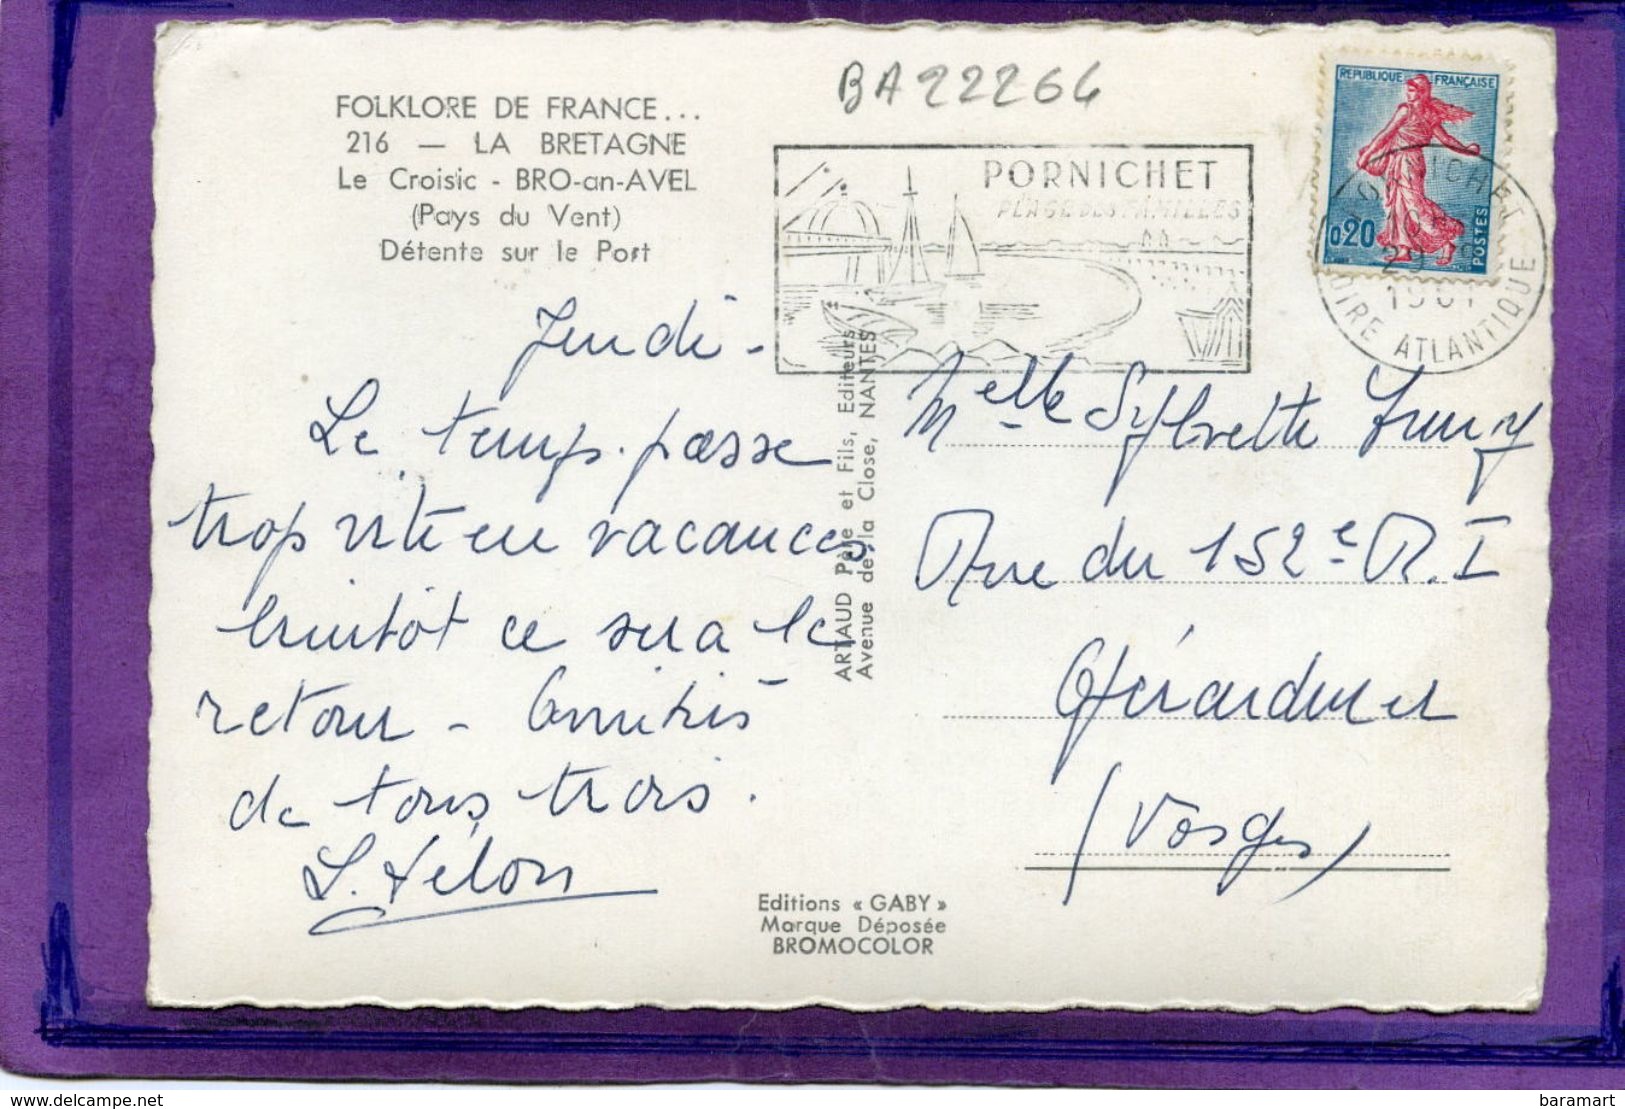 FOLKLORE DE FRANCE...
216 — LA BRETAGNE
Le Croisic - BRO-an-AVEL
(Pays du Vent)
Détente sur le Port
BA22264
PORNICHET
PLAGE DES FAMILLES
REPUBLIQUE FRANÇAISE
0,20
POSTES
PORNICHET
1961
LOIRE ATLANTIQUE
Jeudi -
Le temps passe
trop vite en vacances
bientôt ce sera le
retour - Amitiés
de tous trois.
ARTAUD Père et Fils, Editeurs
Avenue de la Close, NANTES
Melle Sylvette
Rue du 152e R. I
Gérardmer
(Vosges)
Editions « GABY »
Marque Déposée
BROMOCOLOR
www.delcampe.net
baramart